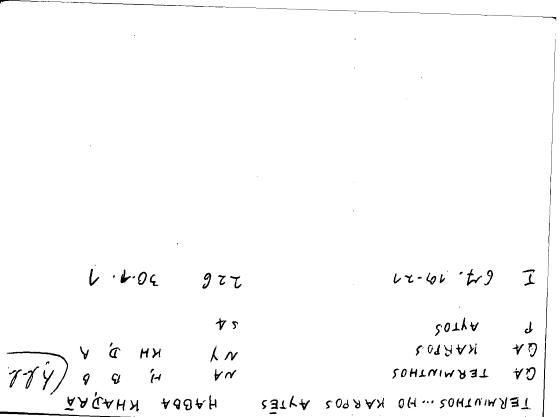 TERMINTHOS ... HO KARPOS AYTĒS ḤABBA KHAḌRĀ
GA TERMINTHOS NA Ḥ, B B
GA KARPOS NY KH Ḍ, A
P AYTOS SA
I 67, 19-21 226 30.1.1